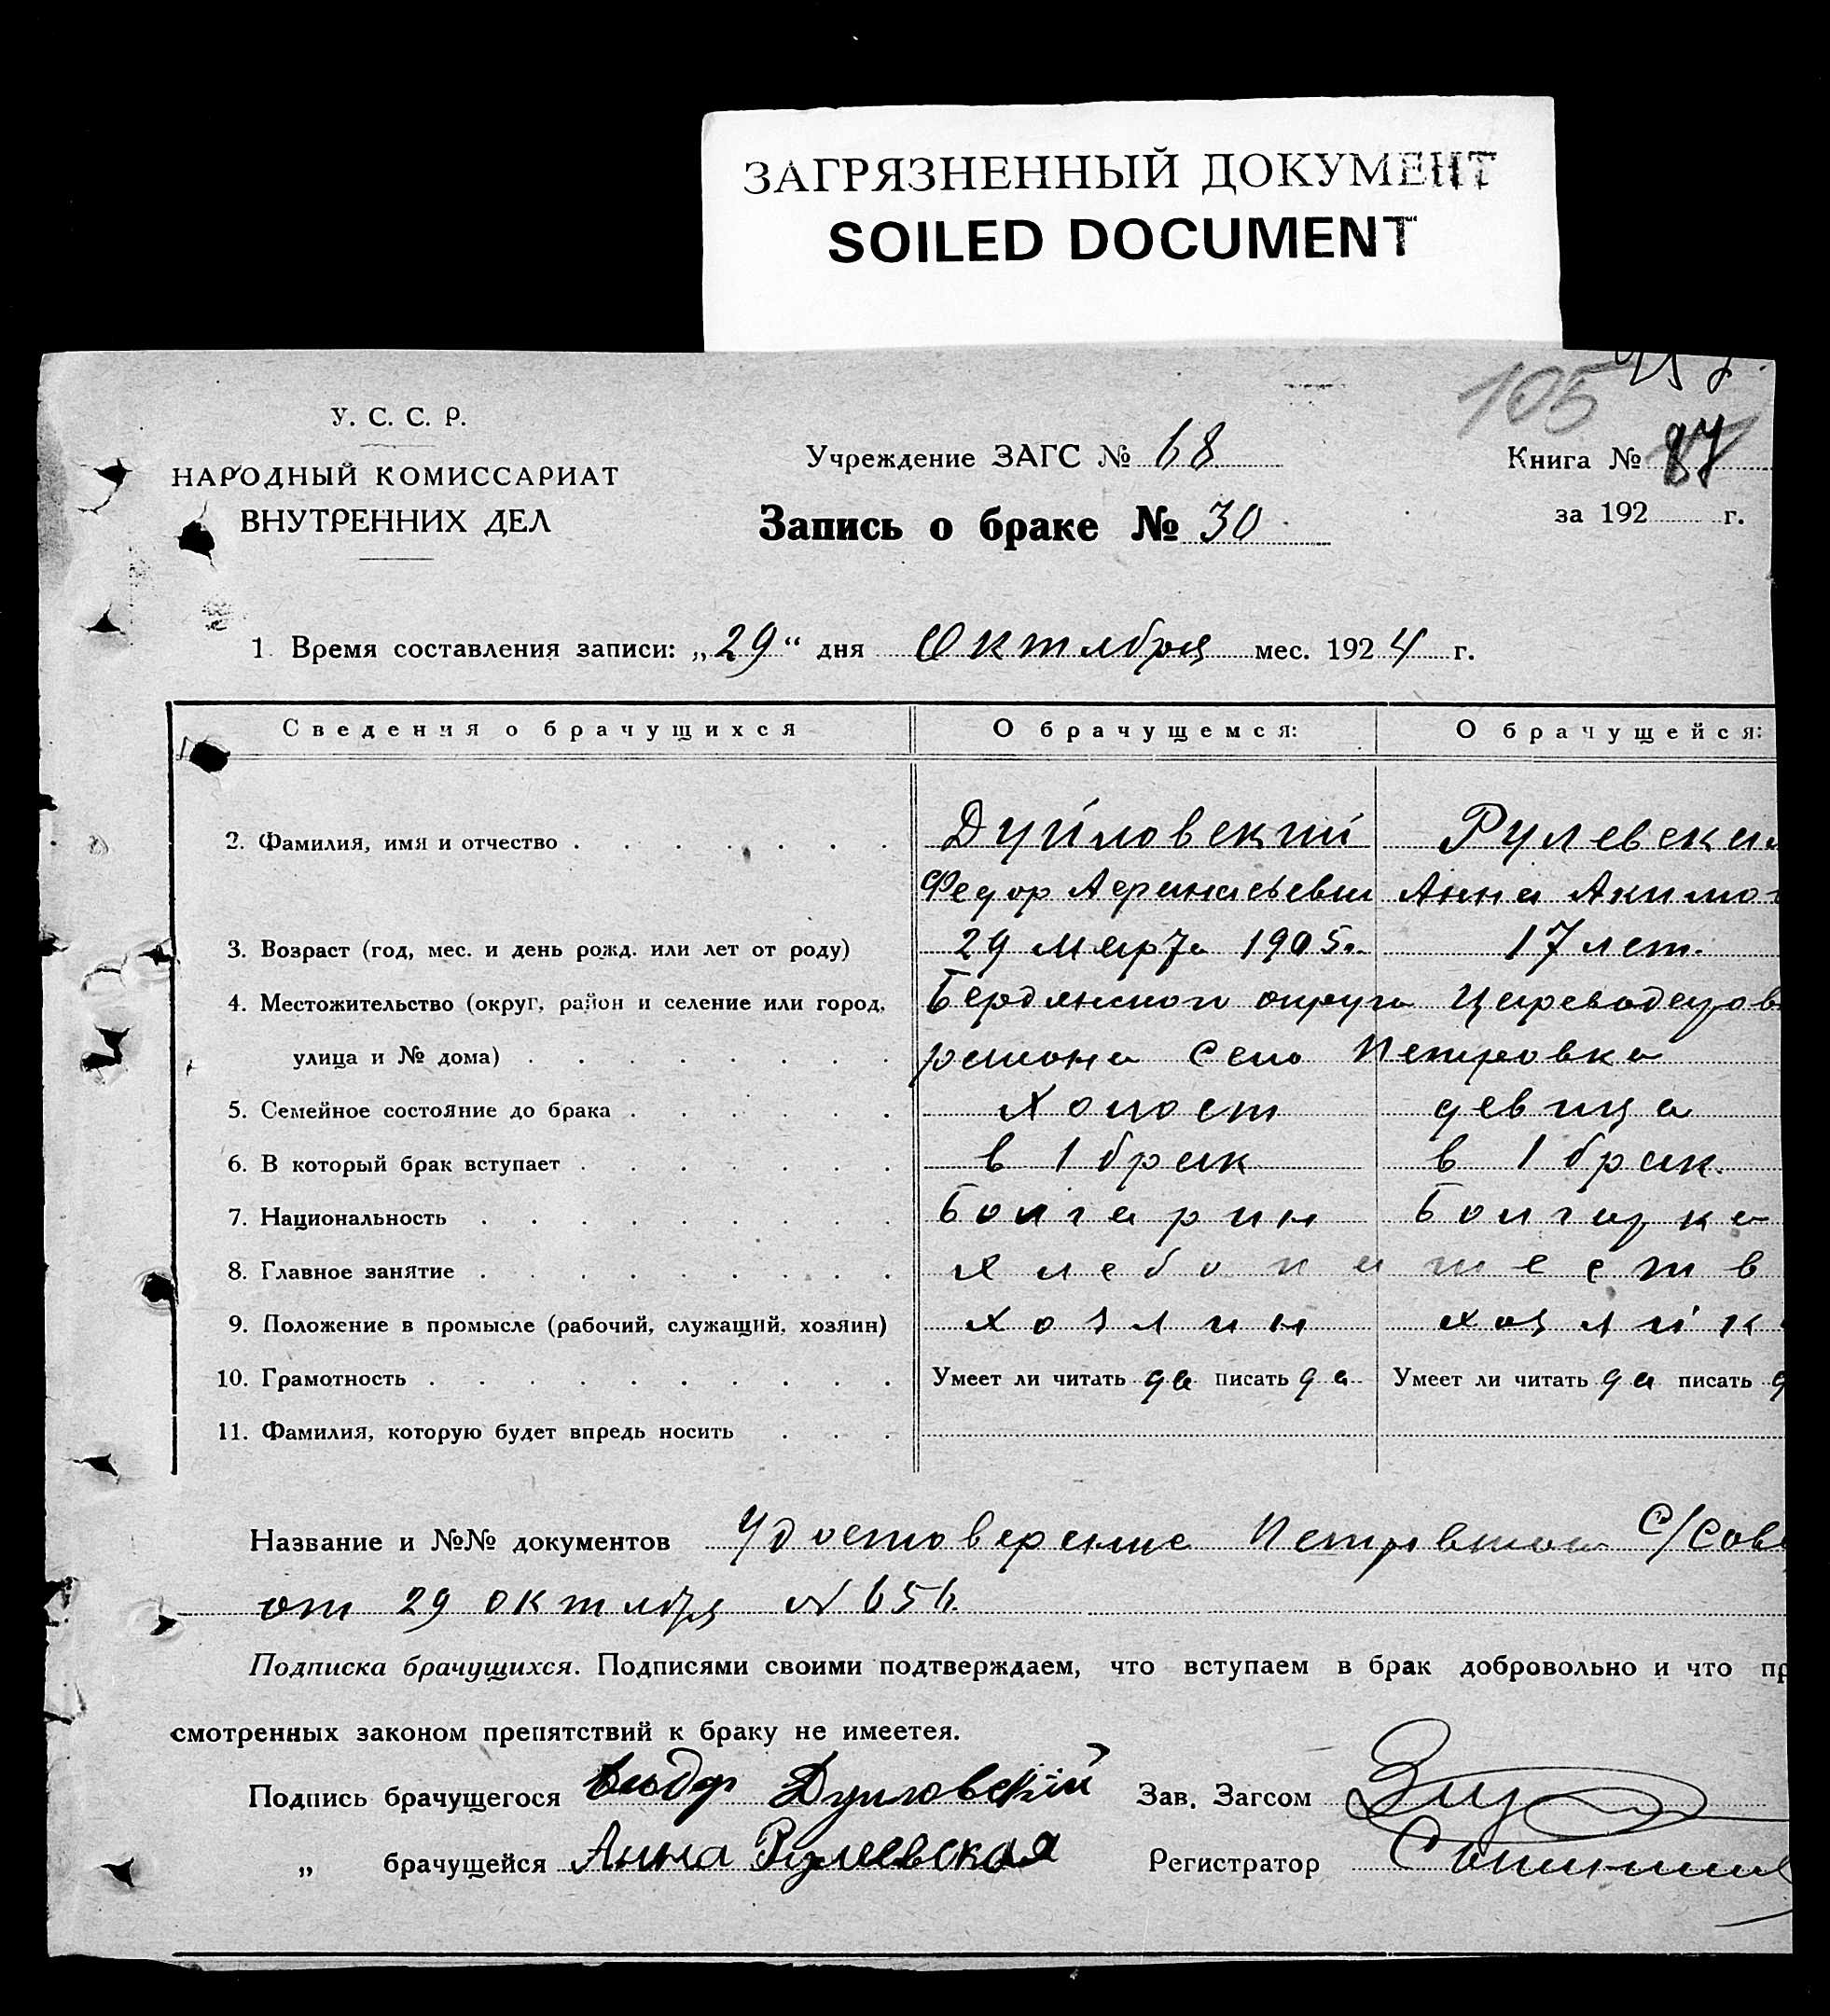 ЗАГРЯЗНЕННЫЙ ДОКУМЕНТ
SOILED DOCUMENT
105
У. С. С. Р.
НАРОДНЫЙ КОМИССАРИАТ
ВНУТРЕННИХ ДЕЛ
Учреждение ЗАГС № 68
Запись о браке № 30
Книга № 87
за 192 г.
1. Время составления записи: „29“ дня Октября мес. 1924 г.
Сведения о брачущихся О брачущемся: О брачущейся:
2. Фамилия, имя и отчество Дуйловский Рулевская
Федор Афанасьевич Анна Акимов
3. Возраст (год, мес. и день рожд. или лет от роду) 29 Марта 1905 г. 17 лет.
4. Местожительство (округ, район и селение или город, Бердянского округа Цареводаров
улица и № дома) района село Петровка
5. Семейное состояние до брака холост девица
6. В который брак вступает в 1 брак в 1 брак.
7. Национальность Болгарин Болгарка
8. Главное занятие Хлебопашеств
9. Положение в промысле (рабочий, служащий, хозяин) хозяин хозяйк
10. Грамотность Умеет ли читать да писать да Умеет ли читать да писать д
11. Фамилия, которую будет впредь носить
Название и №№ документов Удостоверение Петровского С/Сове
от 29 октября № 656
Подписка брачущихся. Подписями своими подтверждаем, что вступаем в брак добровольно и что пр
смотренных законом препятствий к браку не имеетея.
Подпись брачущегося Дуиловскій Зав. Загсом
„ брачущейся Анна Рулевская Регистратор